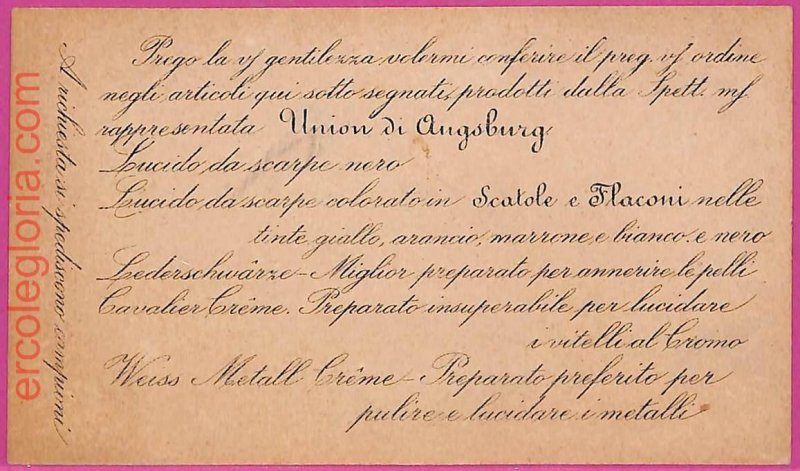 Prego la vs/ gentilezza volermi conferire il preg. vs/ ordine
negli articoli qui sotto segnati, prodotti dalla Spett. ms/
rappresentata Union di Augsburg
Lucido da scarpe nero
Lucido da scarpe colorato in Scatole e Flaconi nelle
tinte giallo, arancio, marrone e bianco e nero
Lederschwärze - Miglior preparato per annerire le pelli
Cavalier Crême. Preparato insuperabile per lucidare
i vitelli al Cromo
Weiss Metall Crême - Preparato preferito per
pulire e lucidare i metalli
A richiesta si spediscono campioni
ercolegloria.com